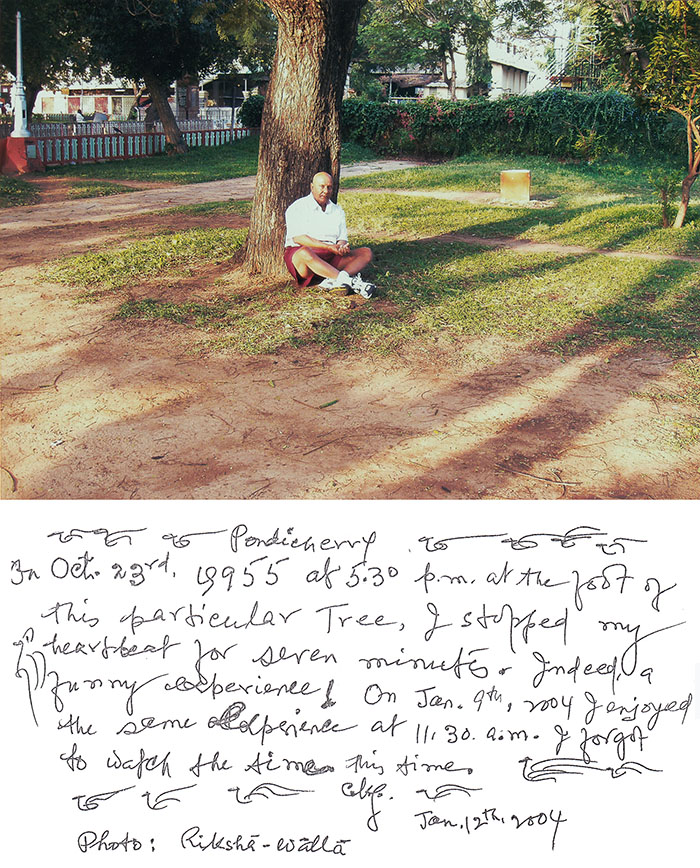 Pondicherry
In Oct. 23rd, 19955 at 5.30 p.m. at the foot of
this particular Tree, I stopped my
heartbeat for seven minutes. Indeed, a
funny experience! On Jan. 9th, 2004 I enjoyed
the same experience at 11.30. a.m. I forgot
to watch the time this time.
ckg.
Jan. 12th, 2004
Photo: Rikshā-wāllā